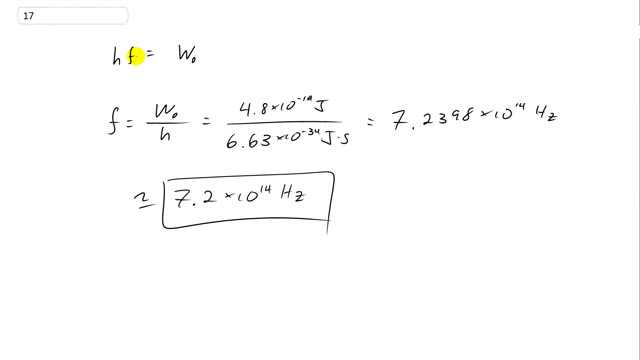 17
hf = W₀
f = W₀/h = 4.8×10⁻¹⁹ J / 6.63×10⁻³⁴ J·s = 7.2398×10¹⁴ Hz
≃ 7.2×10¹⁴ Hz